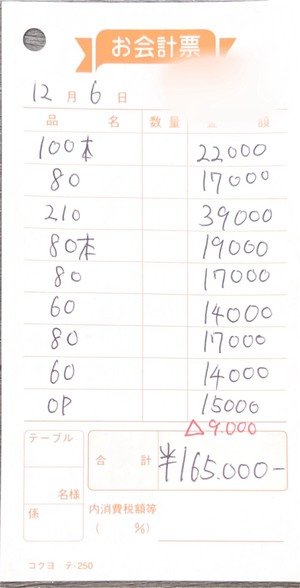 お会計票
12月 6日
品名 数量 金額
100本 22000
80 17000
210 39000
80本 19000
80 17000
60 14000
80 17000
60 14000
OP 15000
△9.000
テーブル
合計 ¥165.000-
名様
係
内消費税額等
( %)
コクヨ テ-250